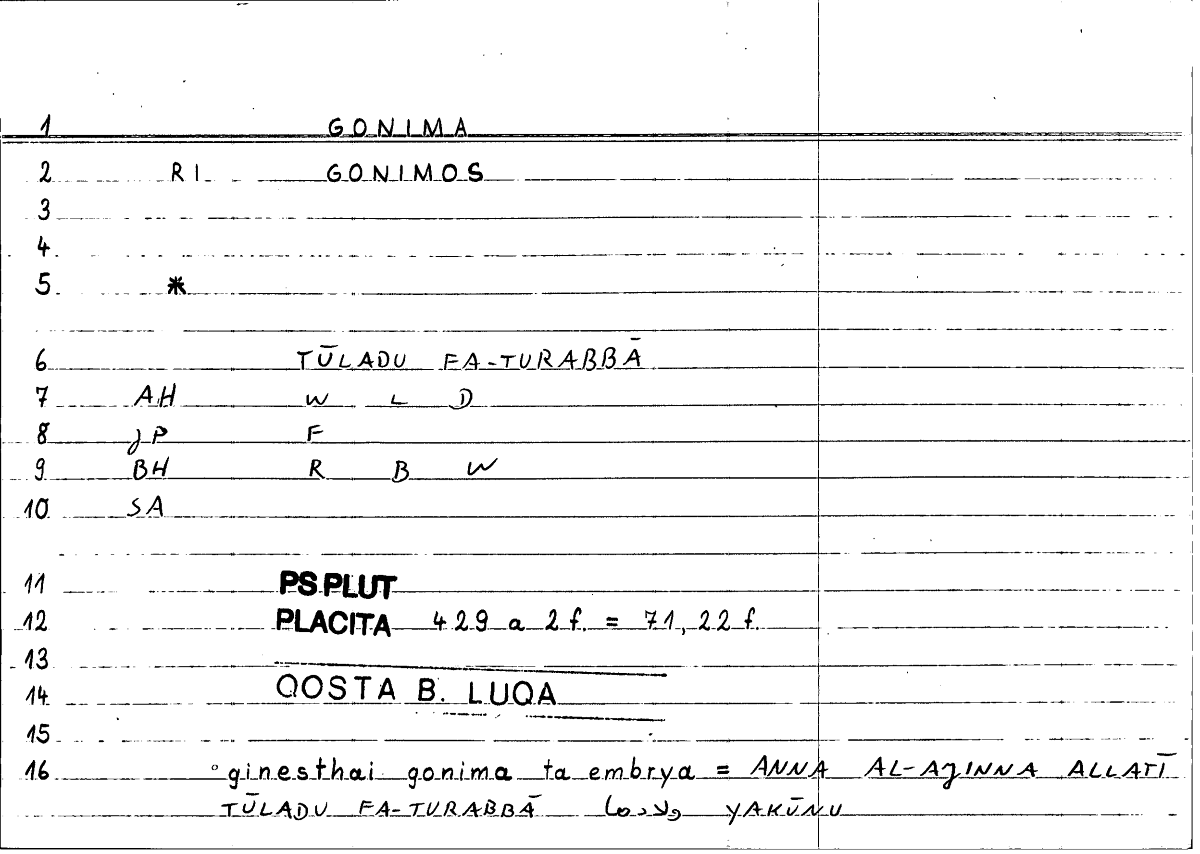 1 GONIMA
2 RI GONIMOS
3
4
5 *
6 TŪLADU FA-TURABBĀ
7 AH W L D
8 JP F
9 BH R B W
10 SA
11 PS.PLUT
12 PLACITA 429 a 2 f. = 71, 22 f.
13
14 QOSTA B. LUQA
15
16 °ginesthai gonima ta embrya = ANNA AL-AJINNA ALLATĪ
TŪLADU FA-TURABBĀ ولادها YAKŪNU